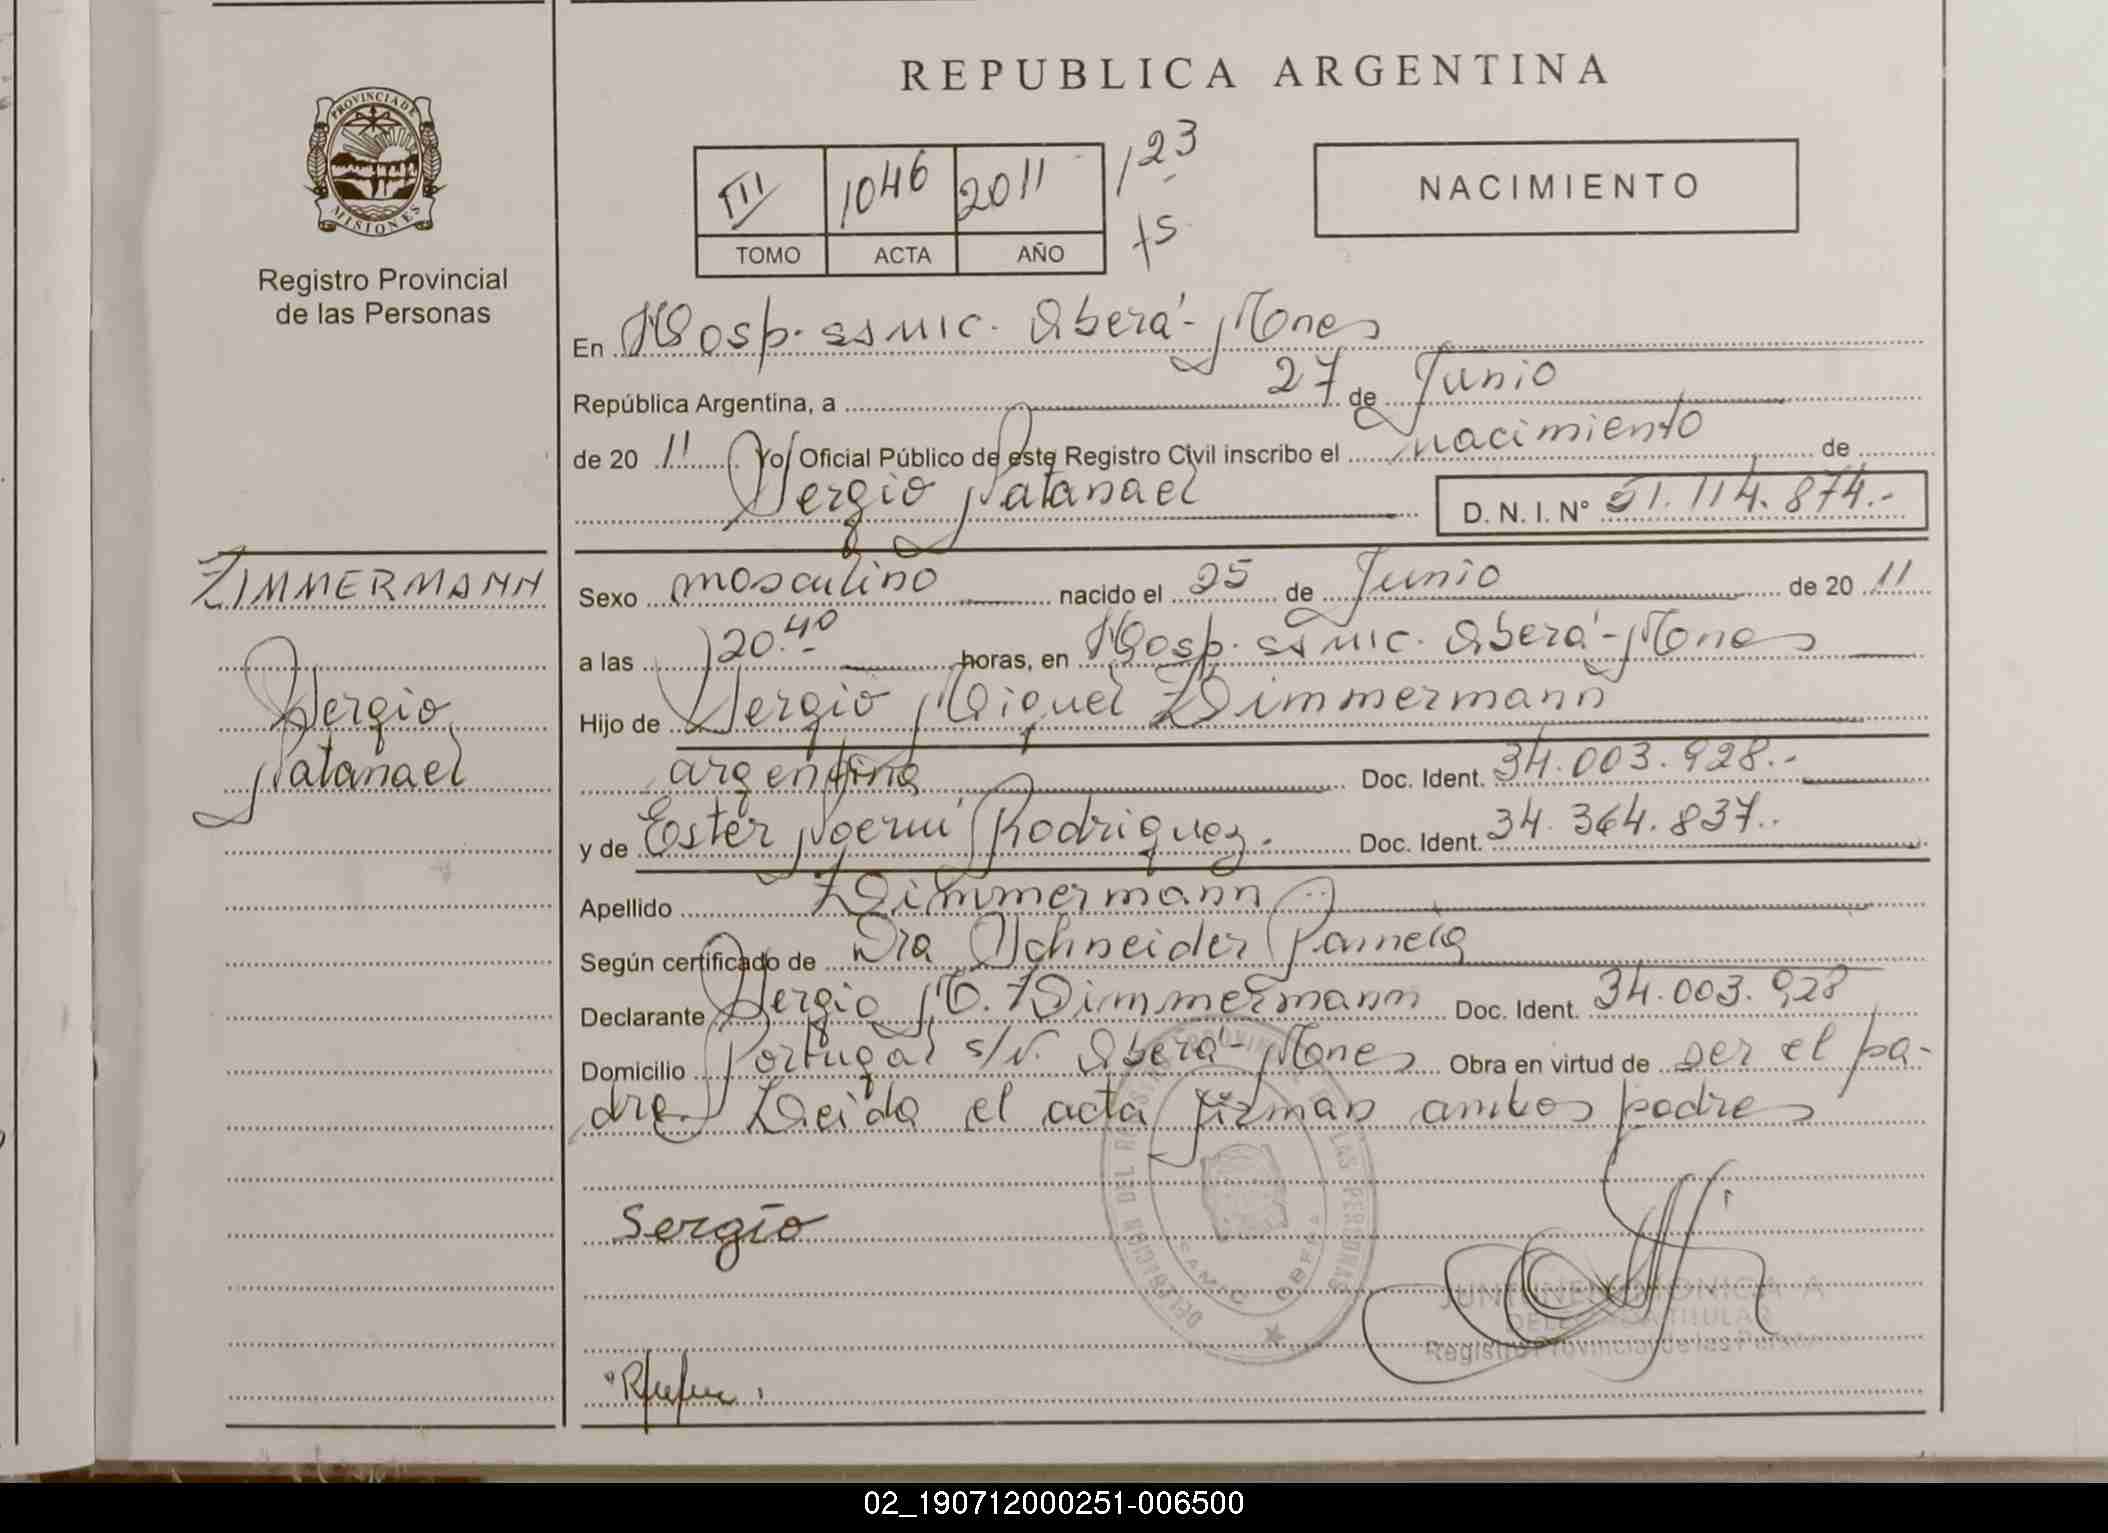 REPUBLICA ARGENTINA
PROVINCIA DE
MISIONES
Registro Provincial
de las Personas
III 1046 2011 123
TOMO ACTA AÑO
NACIMIENTO
En Hosp. SAMIC. Oberá - Mones
República Argentina, a 27 de Junio
de 20 11 Yo, Oficial Público de este Registro Civil inscribo el nacimiento de
Sergio Natanael D. N. I. Nº 51.114.874.-
ZIMMERMANN
Sergio
Natanael
Sexo masculino nacido el 25 de Junio de 20 11
a las 20.40 horas, en Hosp. SAMIC. Oberá - Mones
Hijo de Sergio Miguel Zimmermann
argentina Doc. Ident. 34.003.928.-
y de Ester Noemí Rodriguez. Doc. Ident. 34.364.837.-
Apellido Zimmermann
Según certificado de Dra Schneider Pamela
Declarante Sergio M. Zimmermann Doc. Ident. 34.003.928
Domicilio Portugal s/N. Oberá - Mones Obra en virtud de ser el pa-
dre. Leida el acta firman ambos padres
Sergio
DELEGACION DEL REGISTRO PROVINCIAL DE LAS PERSONAS
SAMIC OBERA
Registro Provincial de las Person
02_190712000251-006500